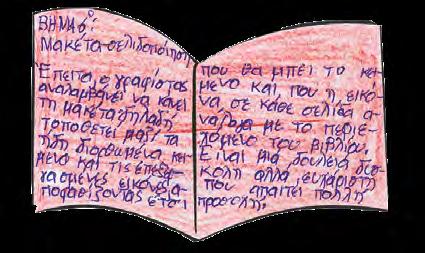 ΒΗΜΑ 6º:
Μακέτα-σελιδοποίηση
Έπειτα, ο γραφίστας
αναλαμβάνει να κάνει
τη μακέτα, δηλαδή
τοποθετεί μαζί τα
ήδη διορθωμένα κεί-
μενα και τις επεξερ-
γασμένες εικόνες α-
ποφασίζοντας έτσι
που θα μπει το κεί-
μενο και, που η εικό-
να, σε κάθε σελίδα α-
νάλογα με το περιε-
χόμενο του βιβλίου.
Είναι μια, δουλειά δύσ-
κολη αλλά, ευχάριστη
που απαιτεί πολλή
προσοχή.